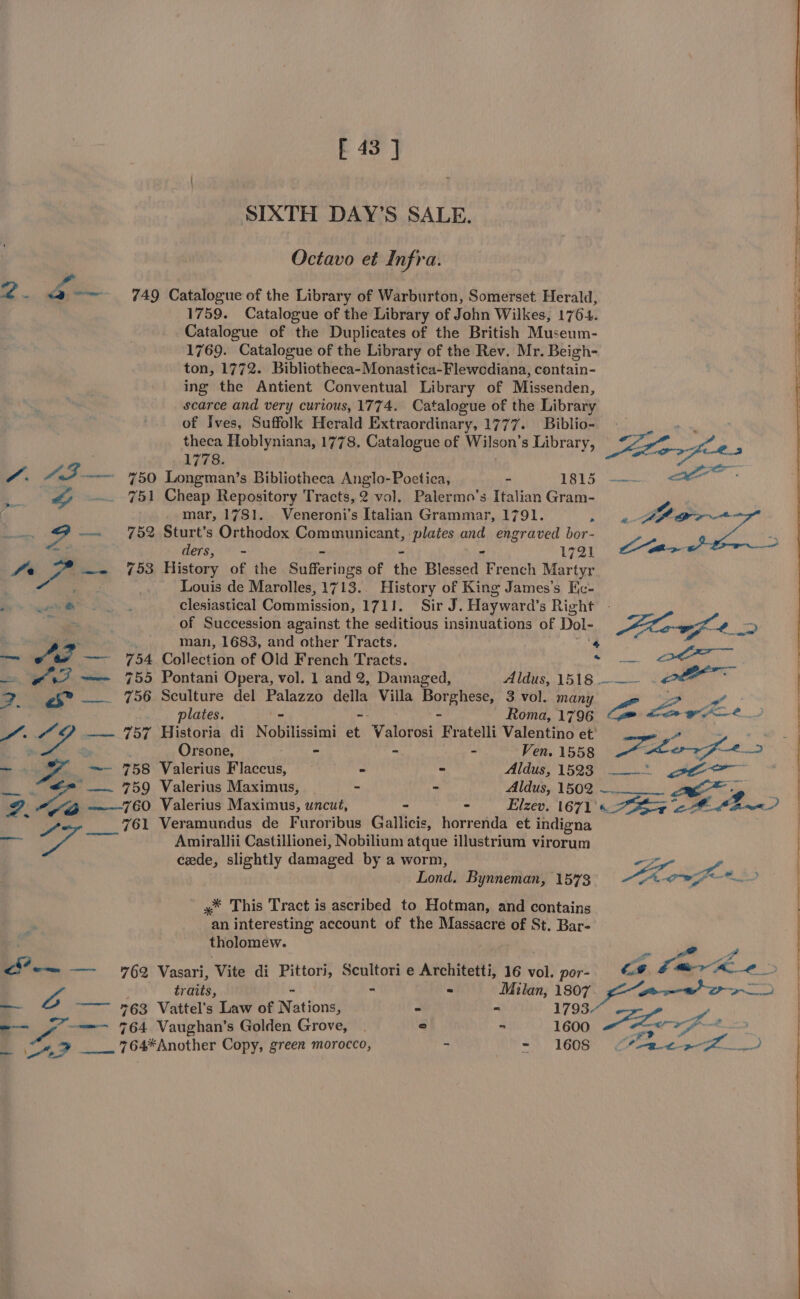 [ 43 ]
SIXTH DAY'S SALE.
Octavo et Infra.
749 Catalogue of the Library of Warburton, Somerset Herald,
1759. Catalogue of the Library of John Wilkes, 1764.
Catalogue of the Duplicates of the British Museum-
1769. Catalogue of the Library of the Rev. Mr. Beigh-
ton, 1772. Bibliotheca-Monastica-Flewodiana, contain-
ing the Antient Conventual Library of Missenden,
scarce and very curious, 1774. Catalogue of the Library
of Ives, Suffolk Herald Extraordinary, 1777. Biblio-
theca Hoblyniana, 1778. Catalogue of Wilson's Library,
1778.
750 Longman's Bibliotheca Anglo-Poetica, - 1815
751 Cheap Repository Tracts, 2 vol. Palermo's Italian Gram-
mar, 1781. Veneroni's Italian Grammar, 1791.
752 Sturt's Orthodox Communicant, plates and engraved bor-
ders, - - - - 1721
753 History of the Sufferings of the Blessed French Martyr
Louis de Marolles, 1713. History of King James's Ec-
clesiastical Commission, 1711. Sir J. Hayward's Right
of Succession against the seditious insinuations of Dol-
man, 1683, and other Tracts. 4
754 Collection of Old French Tracts.
755 Pontani Opera, vol. 1 and 2, Damaged, Aldus, 1518
756 Sculture del Palazzo della Villa Borghese, 3 vol. many
plates. - - - Roma, 1796
757 Historia di Nobilissimi et Valorosi Fratelli Valentino et
Orsone, - - - Ven. 1558
758 Valerius Flaccus, - - Aldus, 1523
759 Valerius Maximus, - - Aldus, 1502
760 Valerius Maximus, uncut, - - Elzev. 1671
761 Veramundus de Furoribus Gallicis, horrenda et indigna
Amirallii Castillionei, Nobilium atque illustrium virorum
cæde, slightly damaged by a worm,
Lond. Bynneman, 1573
⁎* This Tract is ascribed to Hotman, and contains
an interesting account of the Massacre of St. Bar-
tholomew.
762 Vasari, Vite di Pittori, Scultori e Architetti, 16 vol. por-
traits, - - - Milan, 1807
763 Vattel's Law of Nations, - - 1793
764 Vaughan's Golden Grove, - - 1600
764*Another Copy, green morocco, - - 1608